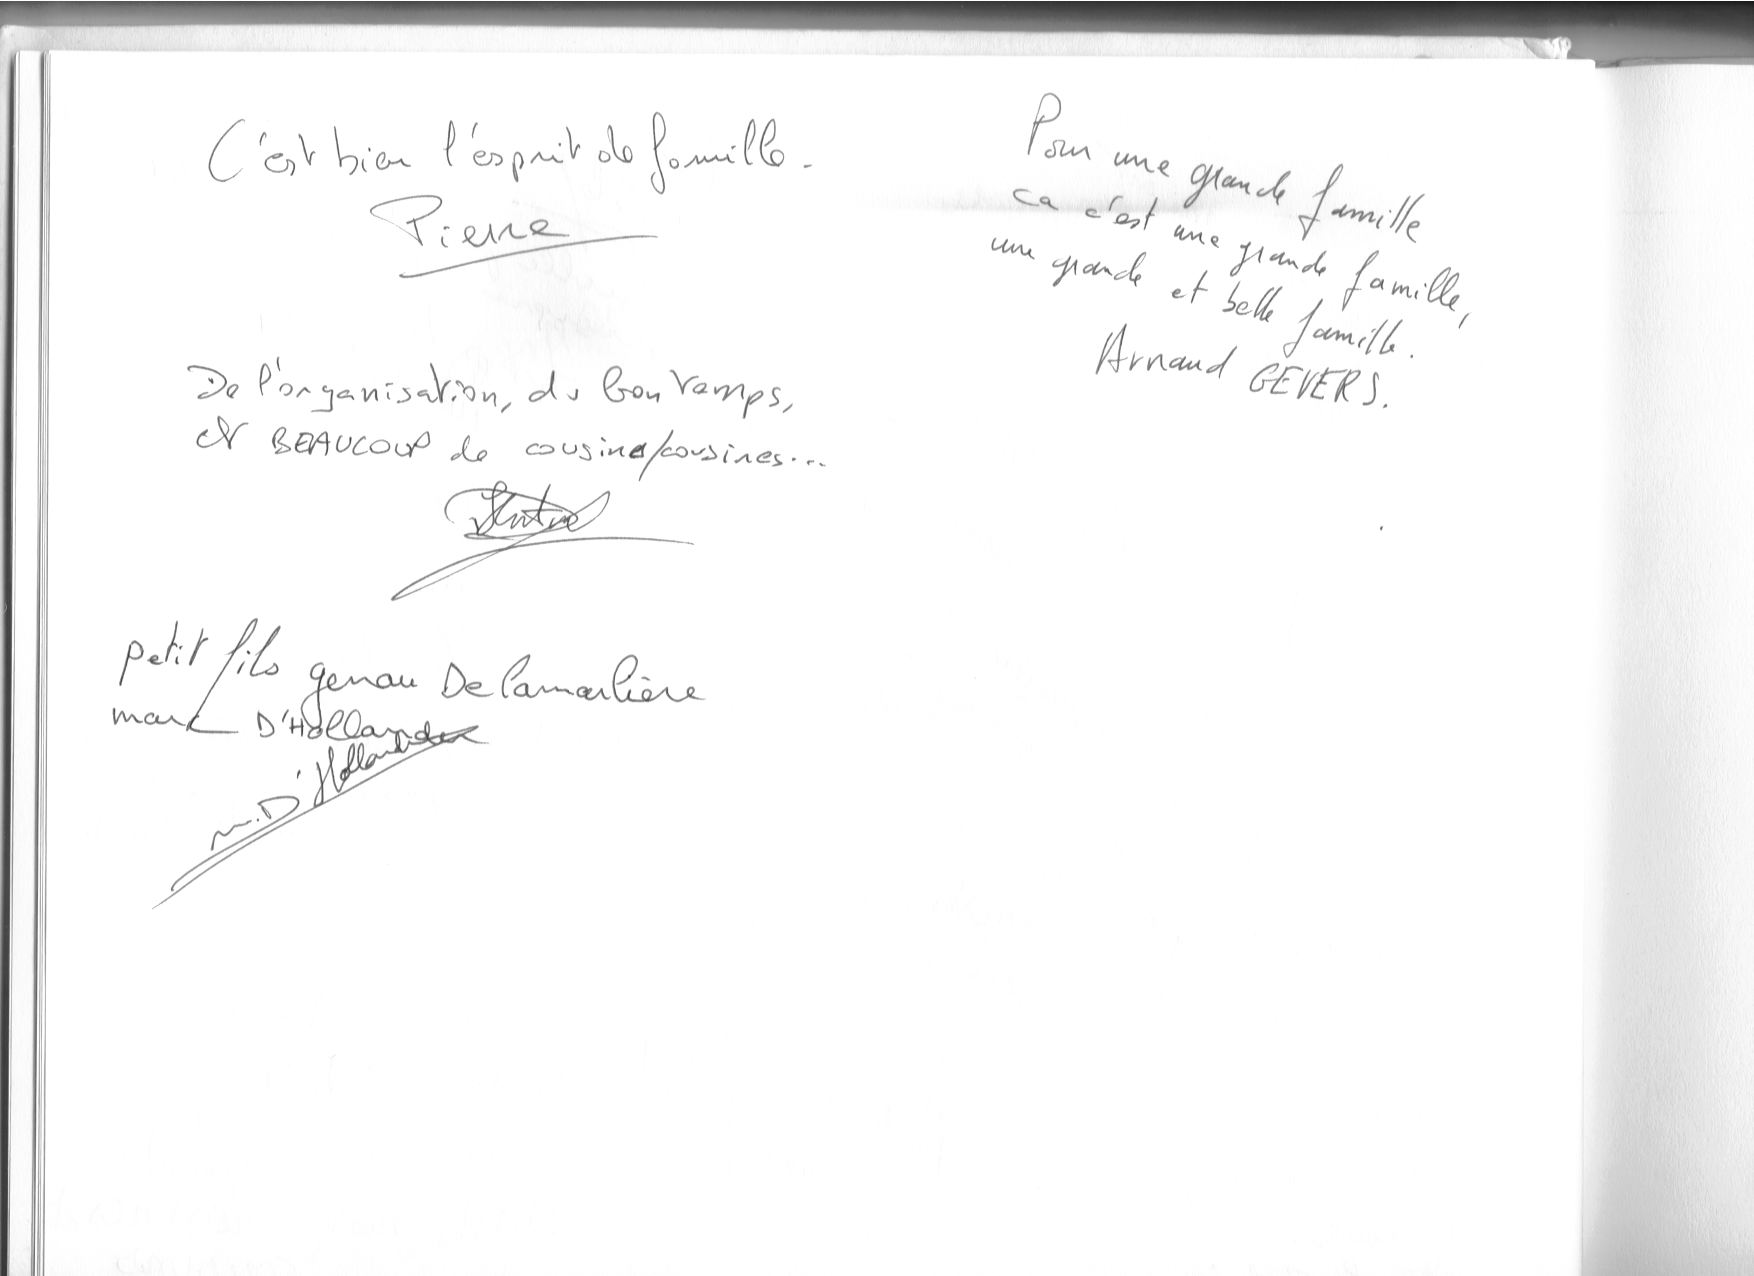 C'est bien l'esprit de famille.
Pierre
De l'organisation, du bon temps,
et BEAUCOUP de cousins/cousines...
petit fils genau Delamarlière
marc D'Hollander
m. D'Hollander
Pour une grande famille
ca c'est une grande famille,
une grande et belle famille.
Arnaud GEVERS.